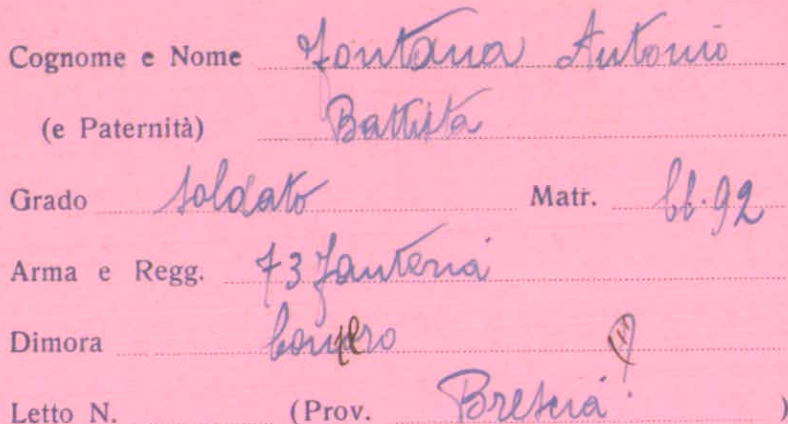 Cognome e Nome Fontana Antonio
(e Paternità) Battista
Grado Soldato Matr. Cl. 92
Arma e Regg. 73 Fanteria
Dimora
Letto N. (Prov. Brescia )